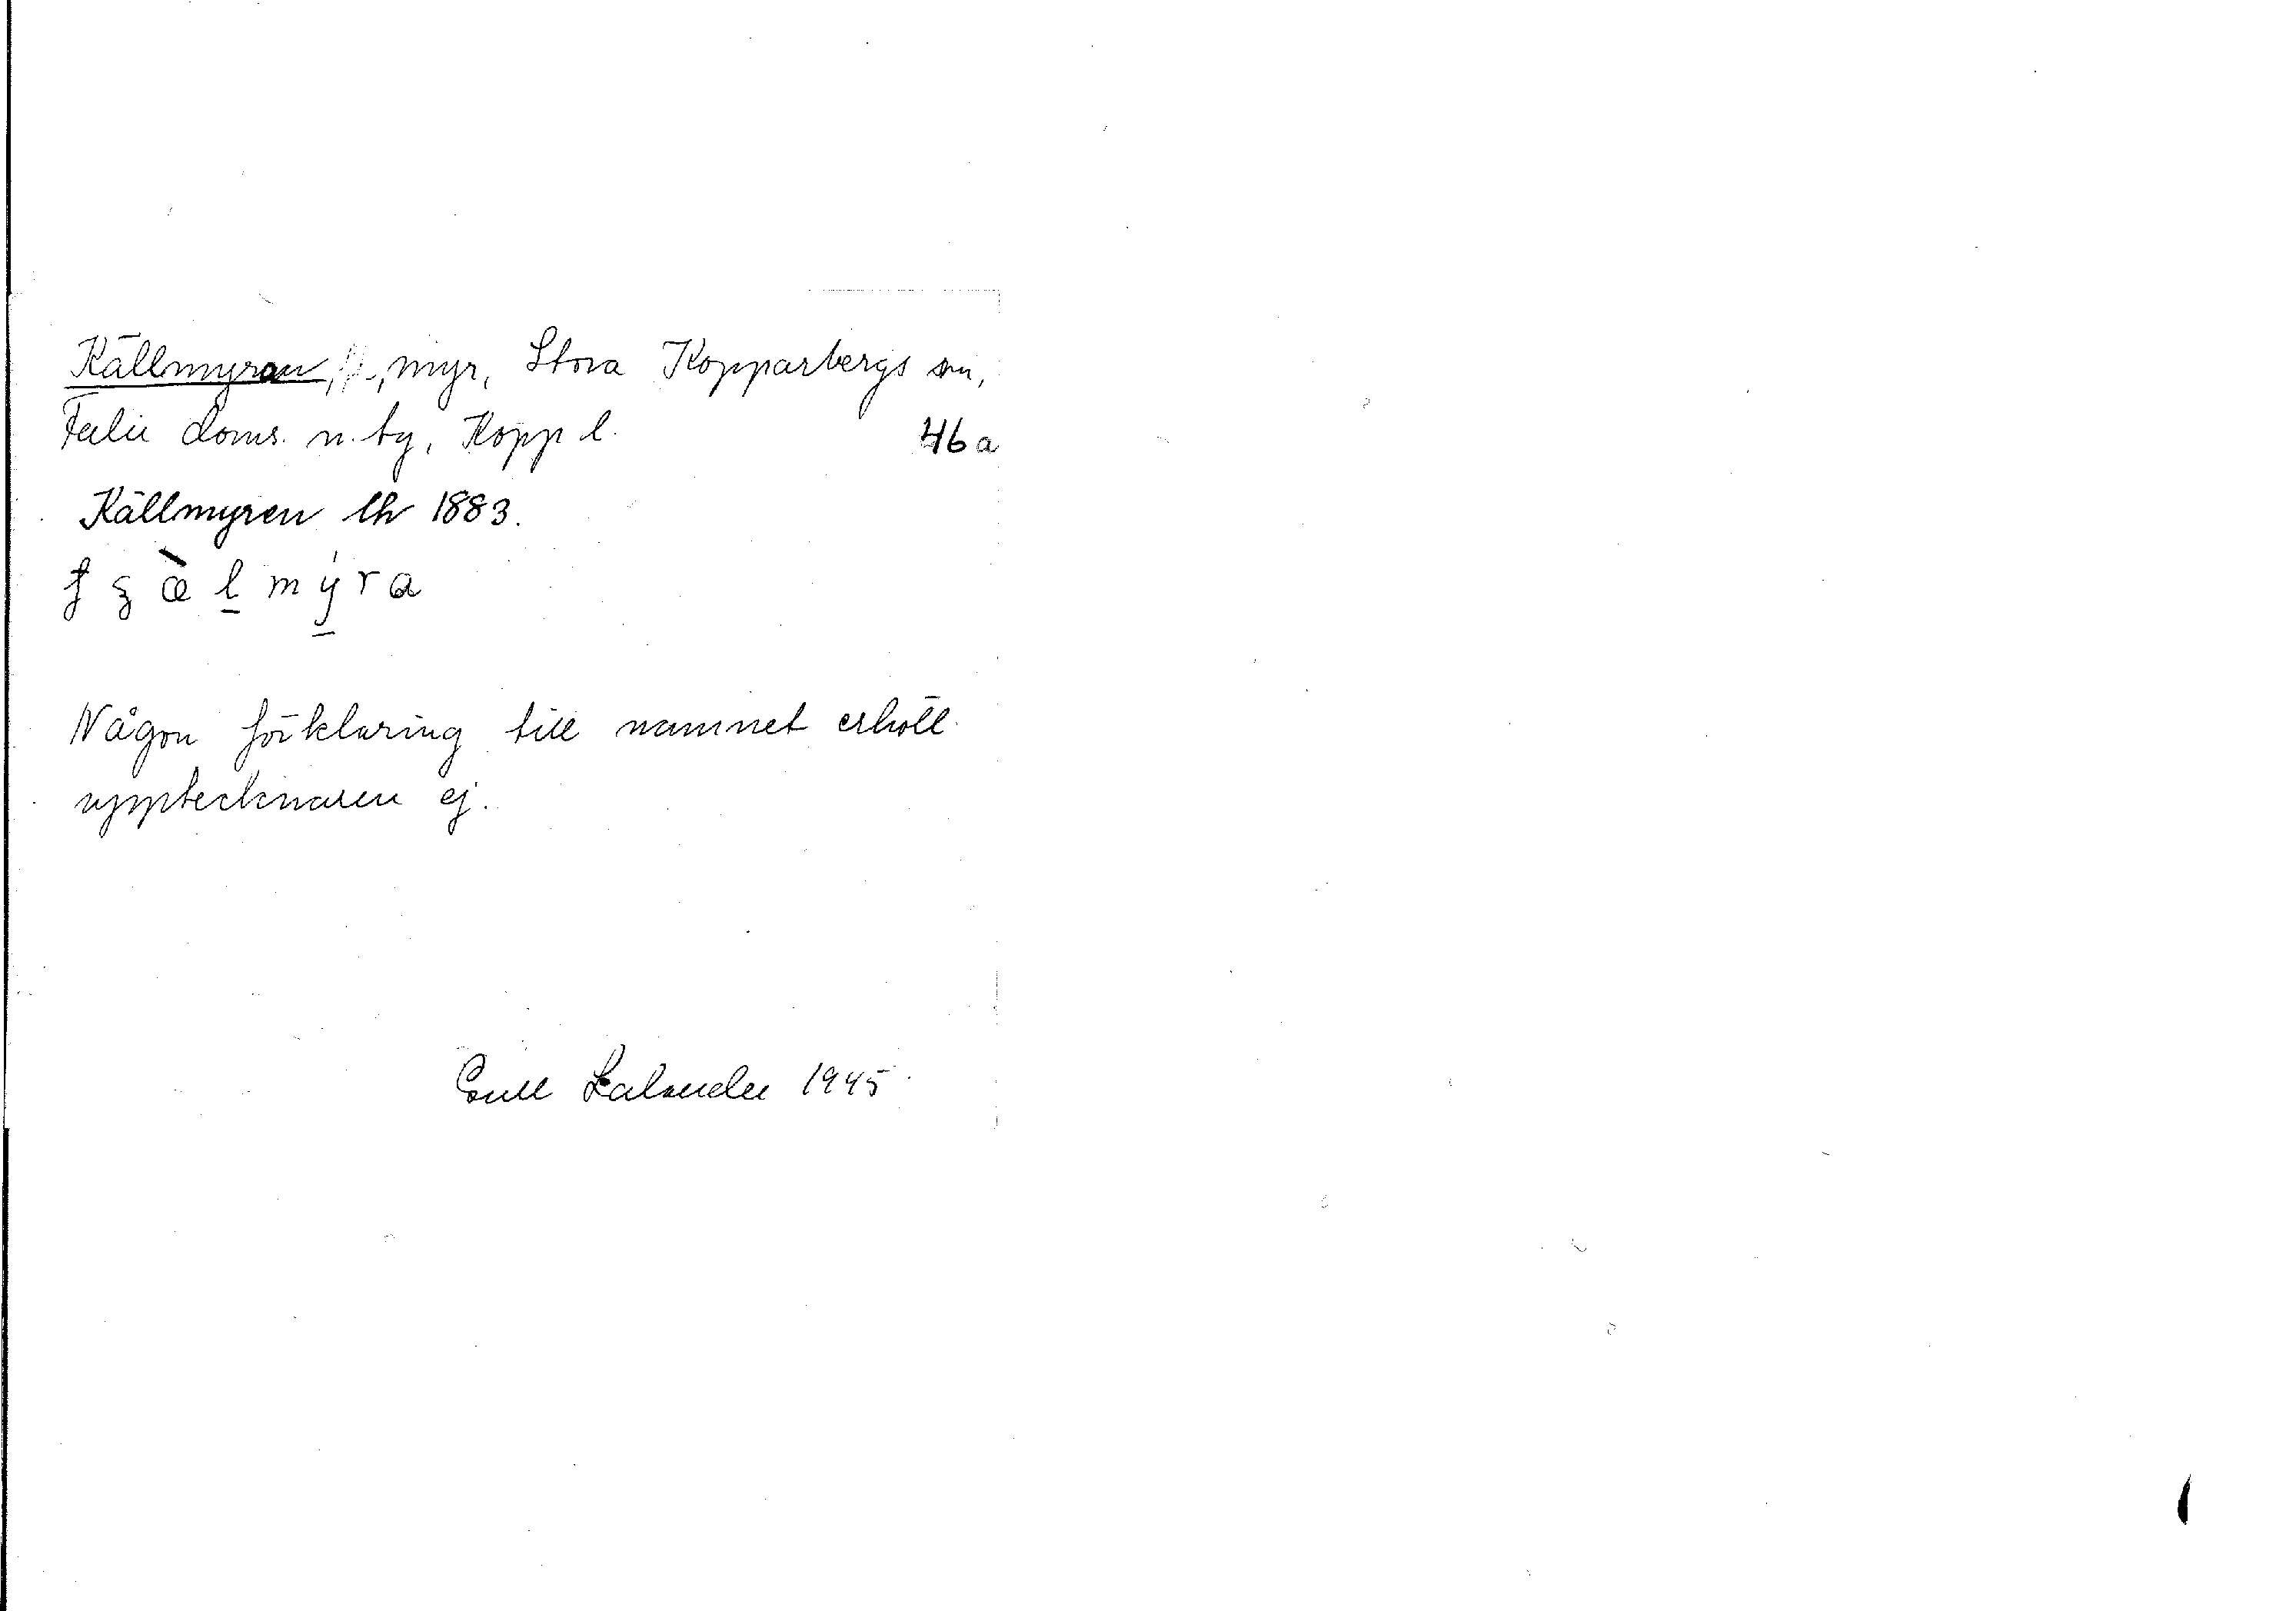 Källmyran, f., myr, Stora Kopparbergs sn,
Falu doms. n. tg, Kopp l. 46a
Källmyren lh 1883.
Någon förklaring till namnet erhöll
upptecknaren ej.
1945